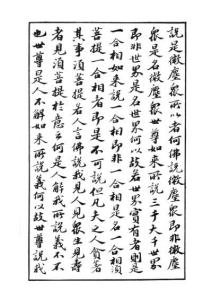 說是微塵眾所以者何佛說微塵眾即非微塵
眾是名微塵眾世尊如來所說三千大千世界
即非世界是名世界何以故若世界實有者則是
一合相如來說一合相即非一合相是名一合相須
菩提一合相者即是不可說但凡夫之人貪著
其事須菩提若人言佛說我見人見眾生見壽
者見須菩提於意云何是人解我所說義不不
也世尊是人不解如來所說義何以故世尊說我